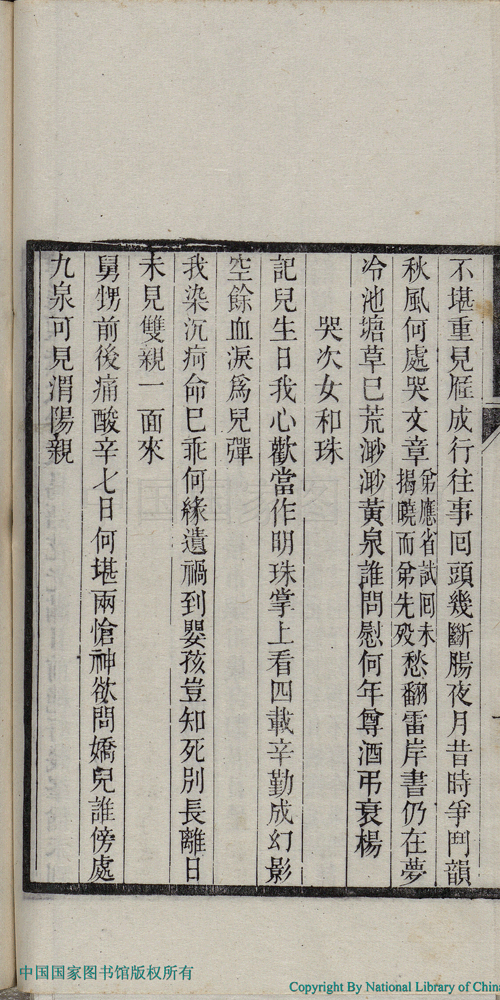 不堪重見雁成行往事囘頭幾斷腸夜月昔時爭鬥韻
秋風何處哭文章弟應省試囘未揭曉而弟先殁愁翻雷岸書仍在夢
冷池塘草已荒渺渺黃泉誰問慰何年尊酒弔衰楊
哭次女和珠
記兒生日我心歡當作明珠掌上看四載辛勤成幻影
空餘血淚爲兒彈
我染沉疴命已乖何緣遺禍到嬰孩豈知死別長離日
未見雙親一面來
舅甥前後痛酸辛七日何堪兩愴神欲問嬌兒誰傍處
九泉可見渭陽親
中国国家图书馆版权所有
Copyright By National Library of Chin